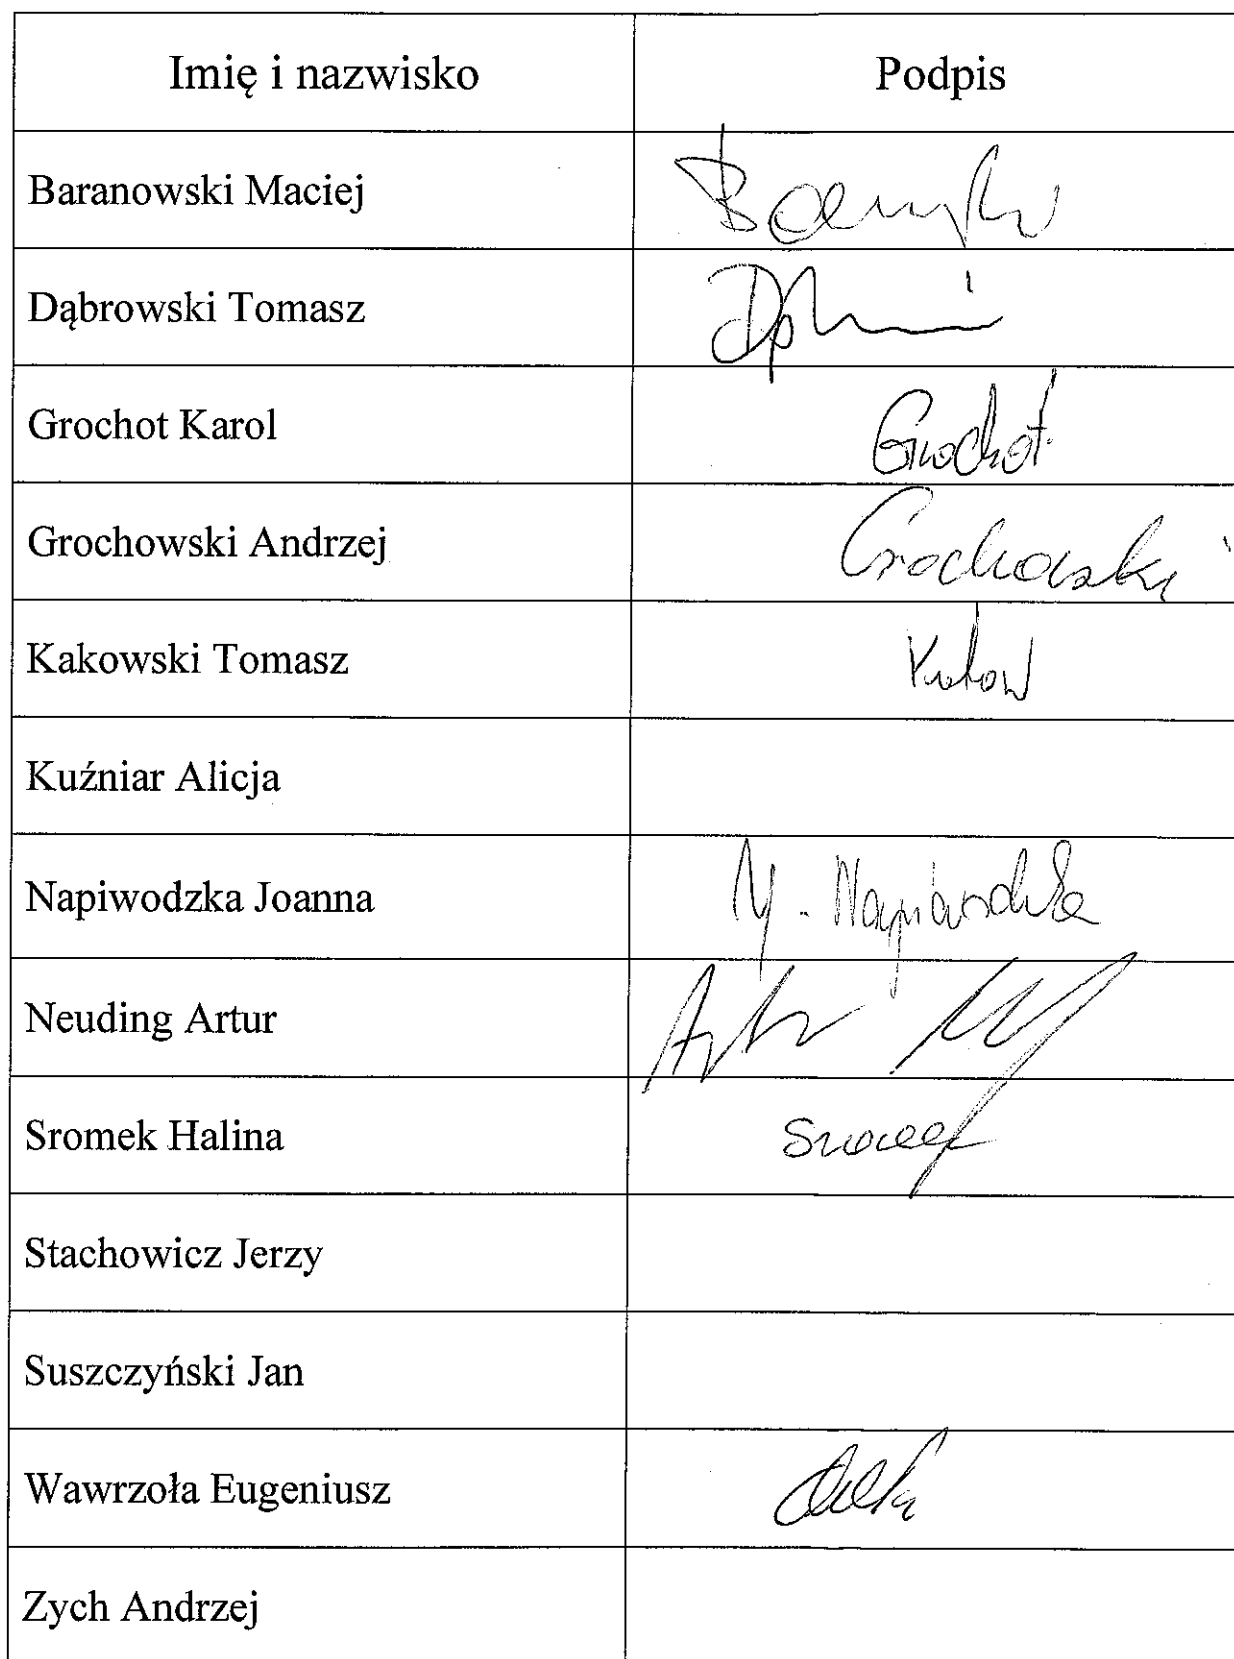 Imię i nazwisko Podpis
Baranowski Maciej
Dąbrowski Tomasz
Grochot Karol Grochot
Grochowski Andrzej Grochowski
Kakowski Tomasz
Kuźniar Alicja
Napiwodzka Joanna
Neuding Artur Artur
Sromek Halina
Stachowicz Jerzy
Suszczyński Jan
Wawrzoła Eugeniusz
Zych Andrzej